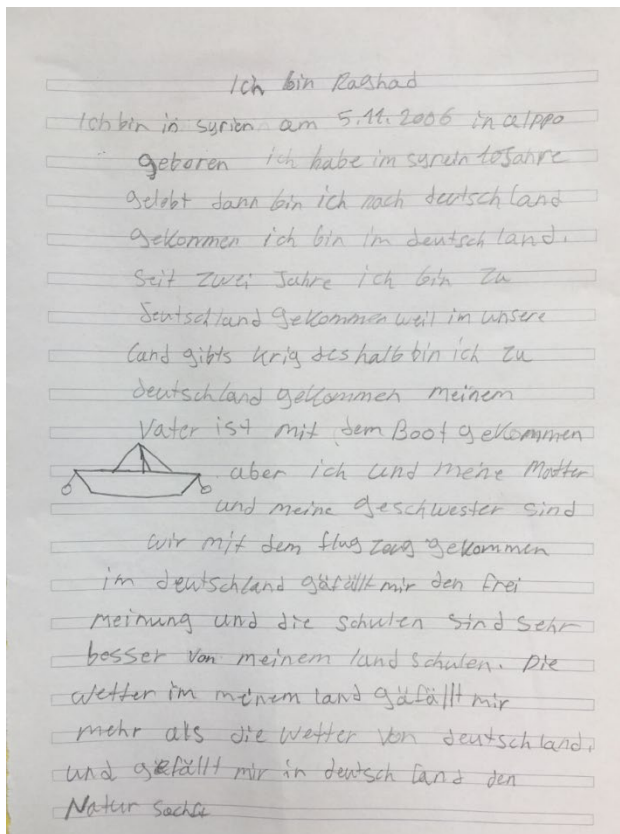 Ich bin Rashad
Ich bin in syrien am 5.11.2006 in alppo
geboren ich habe im syrein 10Jahre
gelebt dann bin ich nach deutschland
gekommen ich bin im deutschland.
seit zwei Jahre ich bin zu
deutschland gekommen weil im unsere
land gibts krig deshalb bin ich zu
deutschland gekommen meinem
Vater ist mit dem Boot gekommen
aber ich und meine Mutter
und meine geschwester sind
wir mit dem flug zeug gekommen
im deutschland gäfällt mir den frei
meinung und die schulen sind sehr
besser von meinem land schulen. Die
wetter im meinem land gäfällt mir
mehr als die wetter von deutschland.
und gefällt mir in deutsch land den
Natur